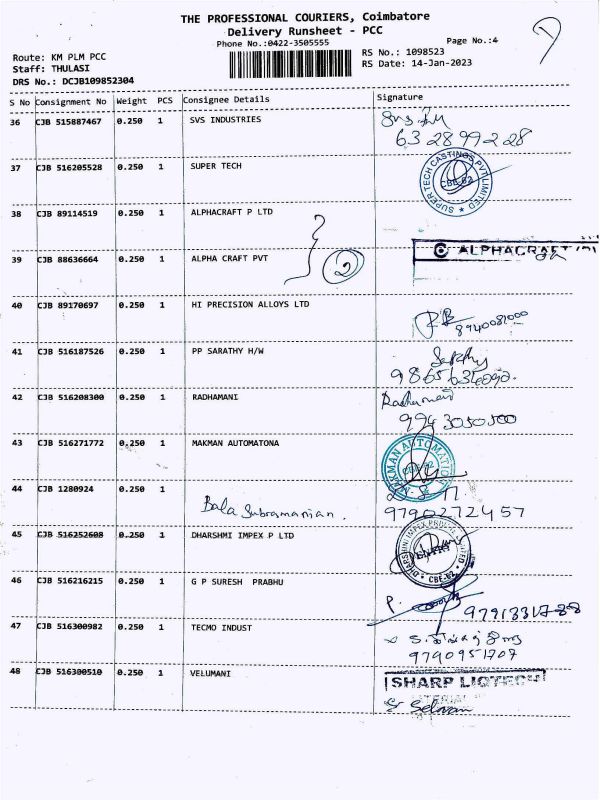 THE PROFESSIONAL COURIERS, Coimbatore
Delivery Runsheet - PCC
Phone No.:0422-3505555
Page No.:4
Route: KM PLM PCC
RS No.: 1098523
Staff: THULASI
RS Date: 14-Jan-2023
DRS No.: DCJB109852304
S No Consignment No Weight PCS Consignee Details Signature
36 CJB 515887467 0.250 1 SVS INDUSTRIES
63 28 99 2 28
37 CJB 516205528 0.250 1 SUPER TECH
SUPER TECH CASTINGS PVT LIMITED
CBE-62
38 CJB 89114519 0.250 1 ALPHACRAFT P LTD
39 CJB 88636664 0.250 1 ALPHA CRAFT PVT
2
ALPHACRAFT
40 CJB 89170697 0.250 1 HI PRECISION ALLOYS LTD
8940081000
41 CJB 516187526 0.250 1 PP SARATHY H/W
42 CJB 516208300 0.250 1 RADHAMANI
Radhamani
9943050500
43 CJB 516271772 0.250 1 MAKMAN AUTOMATONA
MAKMAN AUTOMATION
44 CJB 1280924 0.250 1
Bala Subramanian.
9790272457
45 CJB 516252608 0.250 1 DHARSHMI IMPEX P LTD
DHARSHINI IMPEX LIMITED
CBE-62
46 CJB 516216215 0.250 1 G P SURESH PRABHU
P.
47 CJB 516300982 0.250 1 TECMO INDUST
9790951707
48 CJB 516300510 0.250 1 VELUMANI
SHARP LIQTECH
Selvam